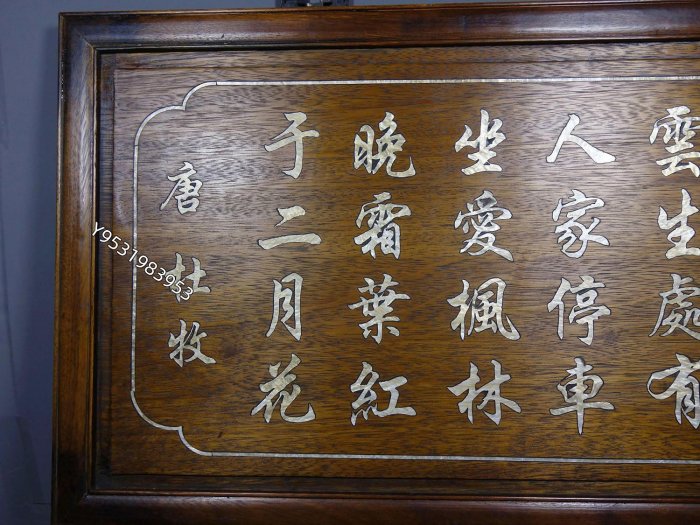 雲生處有
人家停車
坐愛楓林
晚霜葉紅
于二月花
唐杜牧
Y9531983953